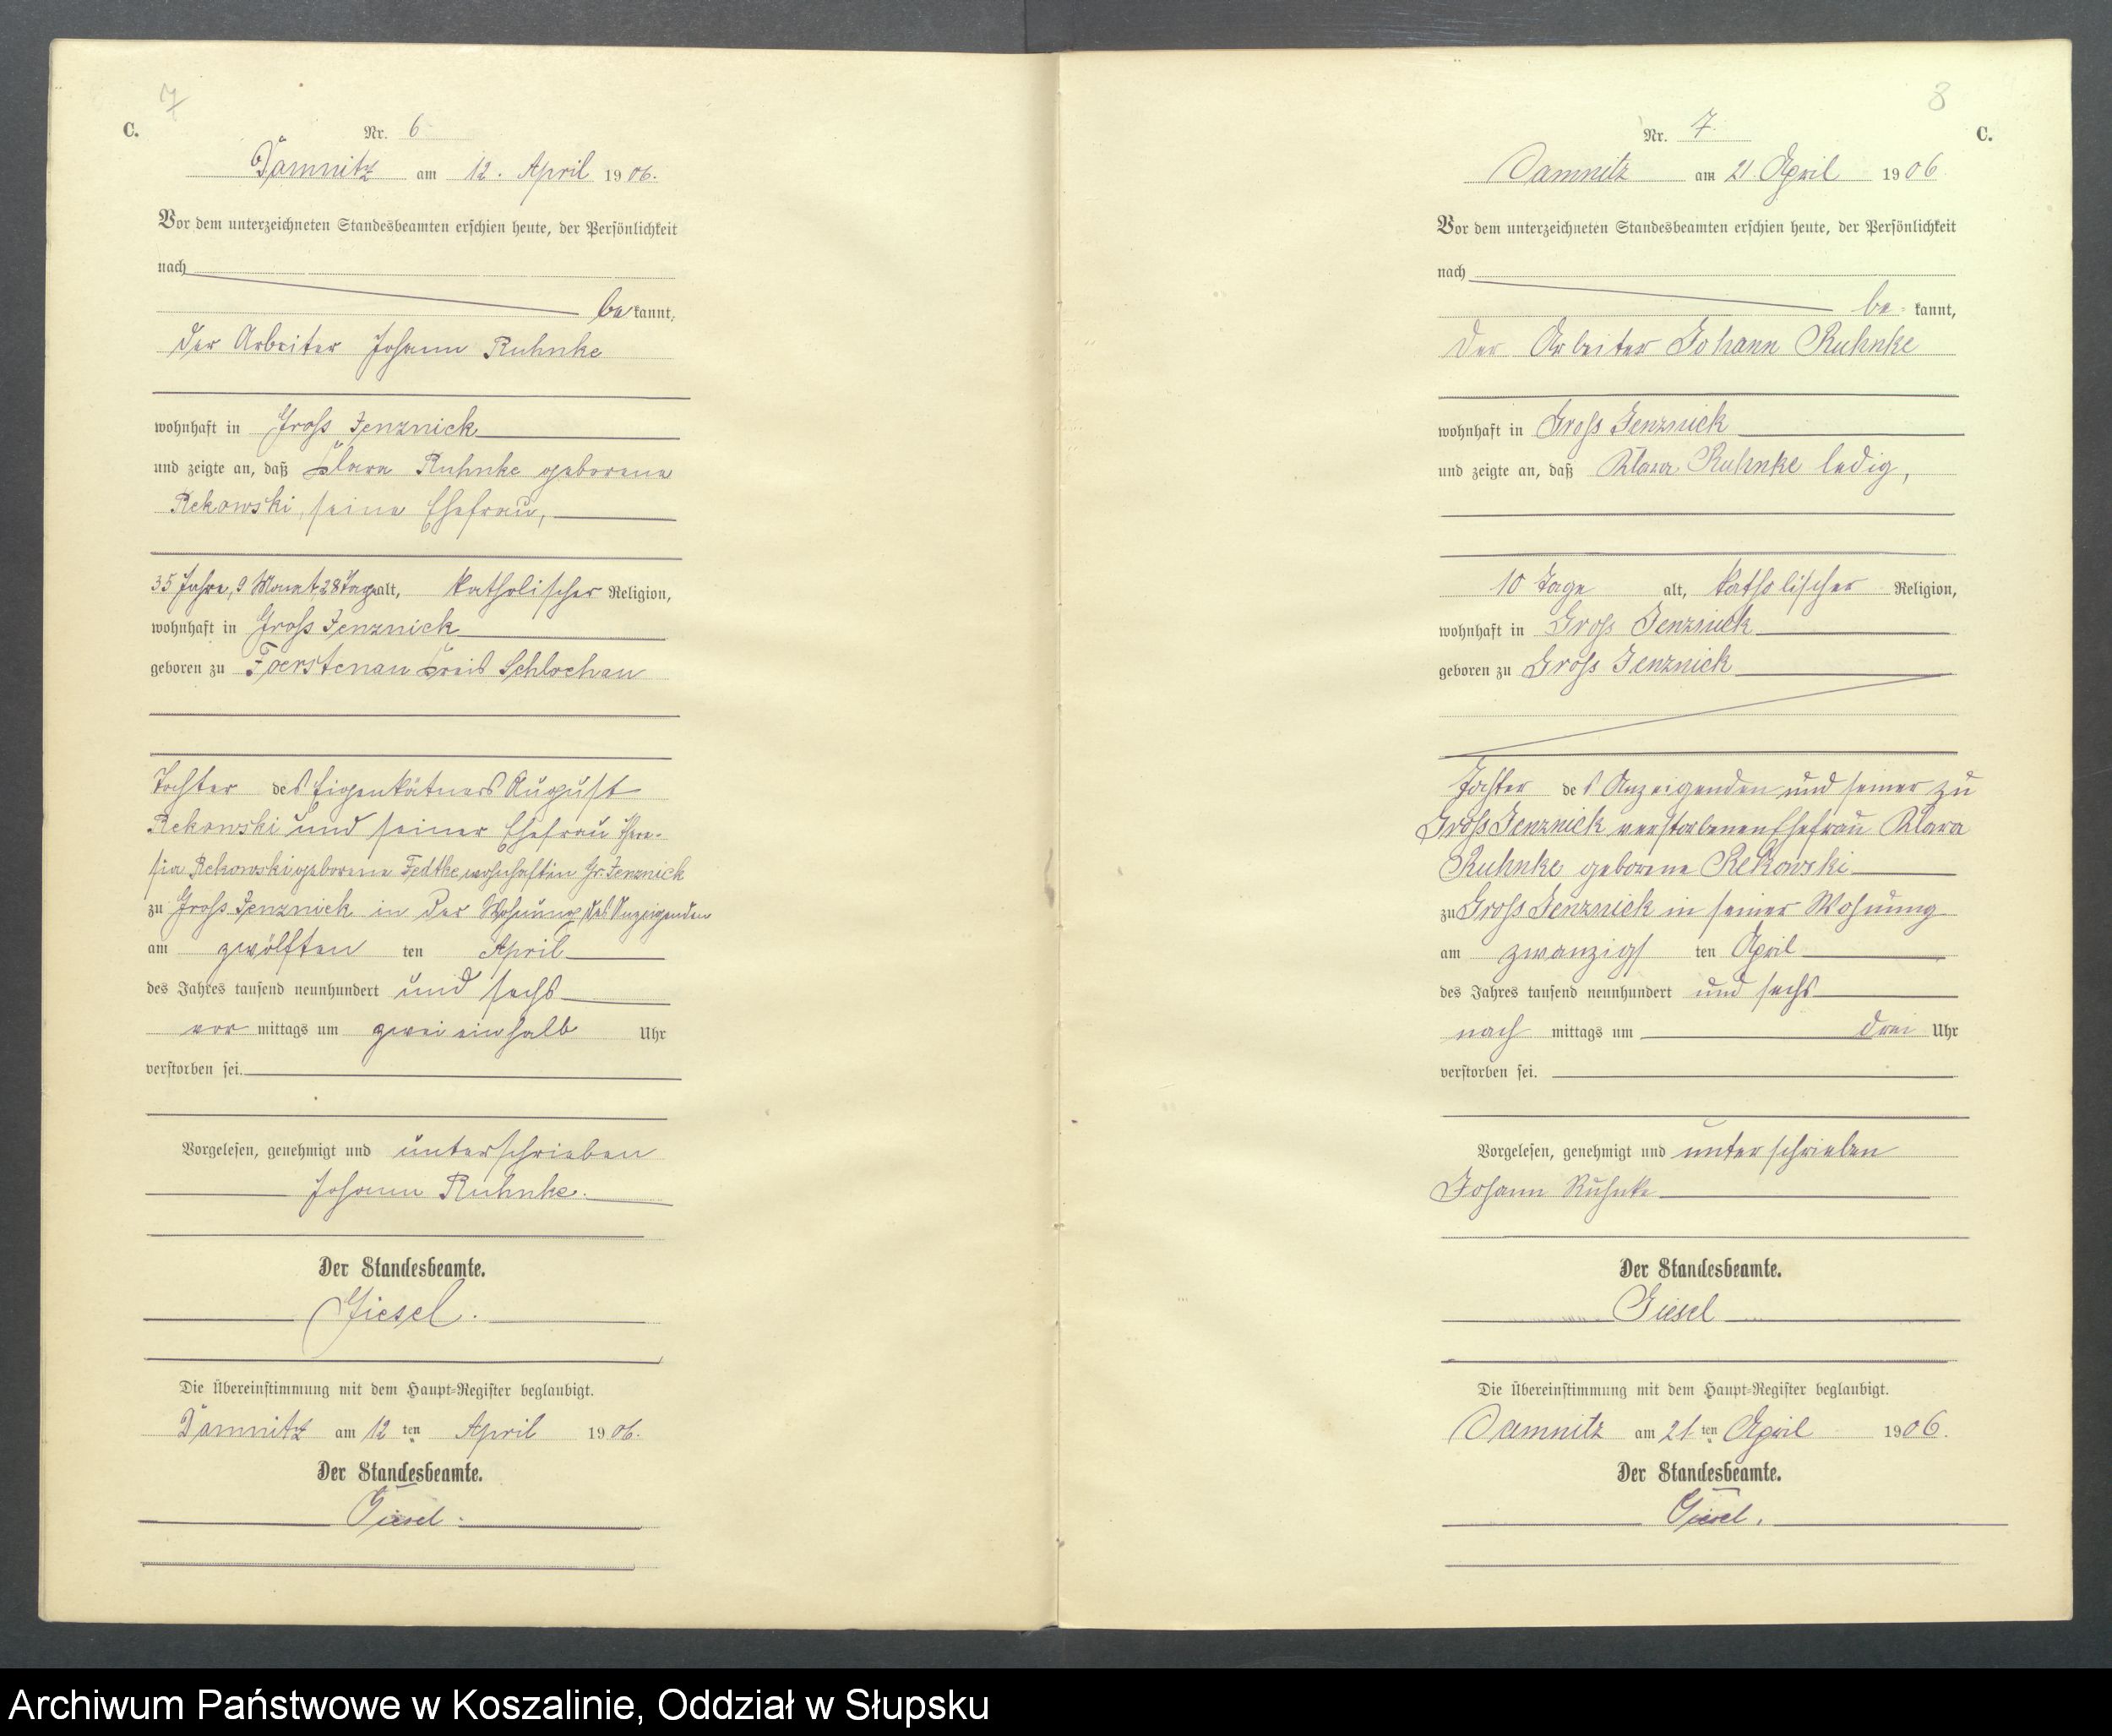 7
C.
Nr. 6
Damnitz am 12. April 1906.
Vor dem unterzeichneten Standesbeamten erschien heute, der Persönlichkeit
nach
bekannt,
der Arbeiter Johann Ruhnke
wohnhaft in Gross Jenznick
und zeigte an, daß Klara Ruhnke geborene
Rekowski, seine Ehefrau,
35 Jahre, 9 Monat, 28 Tage alt, katholischer Religion,
wohnhaft in Gross Jenznick
geboren zu Foerstenau Kreis Schlochau
Tochter des Eigenkätners August
Rekowski und seiner Ehefrau There-
sia Rekowski geborene Fedtke, wohnhaft in Gr. Jenznick
zu Gross Jenznick in der Wohnung des Anzeigenden
am zwölften ten April
des Jahres tausend neunhundert und sechs
vor mittags um zwei einhalb Uhr
verstorben sei.
Vorgelesen, genehmigt und unterschrieben
Johann Ruhnke.
Der Standesbeamte.
Giesel.
Die Übereinstimmung mit dem Haupt-Register beglaubigt.
Damnitz am 12 ten April 1906.
Der Standesbeamte.
Giesel.
8
C.
Nr. 7.
Damnitz am 21. April 1906
Vor dem unterzeichneten Standesbeamten erschien heute, der Persönlichkeit
nach
be- kannt,
der Arbeiter Johann Ruhnke
wohnhaft in Gross Jenznick
und zeigte an, daß Klara Ruhnke ledig,
10 Tage alt, katholischer Religion,
wohnhaft in Gross Jenznick
geboren zu Gross Jenznick
Tochter des Anzeigenden und seiner zu
Gross Jenznick verstorbenen Ehefrau Klara
Ruhnke geborene Rekowski
zu Gross Jenznick in seiner Wohnung
am zwanzigs ten April
des Jahres tausend neunhundert und sechs
nach mittags um drei Uhr
verstorben sei.
Vorgelesen, genehmigt und unterschrieben
Johann Ruhnke
Der Standesbeamte.
Giesel
Die Übereinstimmung mit dem Haupt-Register beglaubigt.
Damnitz am 21 ten April 1906.
Der Standesbeamte.
Giesel.
Archiwum Państwowe w Koszalinie, Oddział w Słupsku